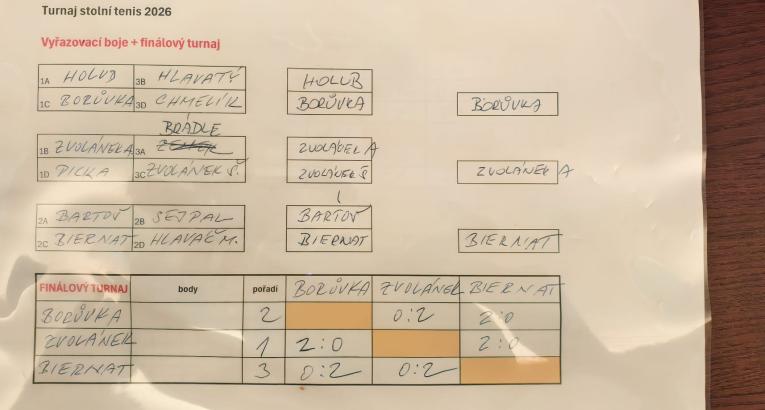 Turnaj stolní tenis 2026
Vyřazovací boje + finálový turnaj
1A HOLUB 3B HLAVATÝ HOLUB
1C BORŮVKA 3D CHMELÍK BORŮVKA BORŮVKA
BRÁDLE
1B ZVOLÁNEK A 3A ZVOLÁNEK A
1D PICKA 3C ZVOLÁNEK Š. ZVOLÁNEK Š ZVOLÁNEK A
2A BARTOŠ 2B SEJPAL BARTOŠ
2C BIERNAT 2D HLAVÁČ M. BIERNAT BIERNAT
FINÁLOVÝ TURNAJ body pořadí BORŮVKA ZVOLÁNEK BIERNAT
BORŮVKA 2 0:2 2:0
ZVOLÁNEK 1 2:0 2:0
BIERNAT 3 0:2 0:2